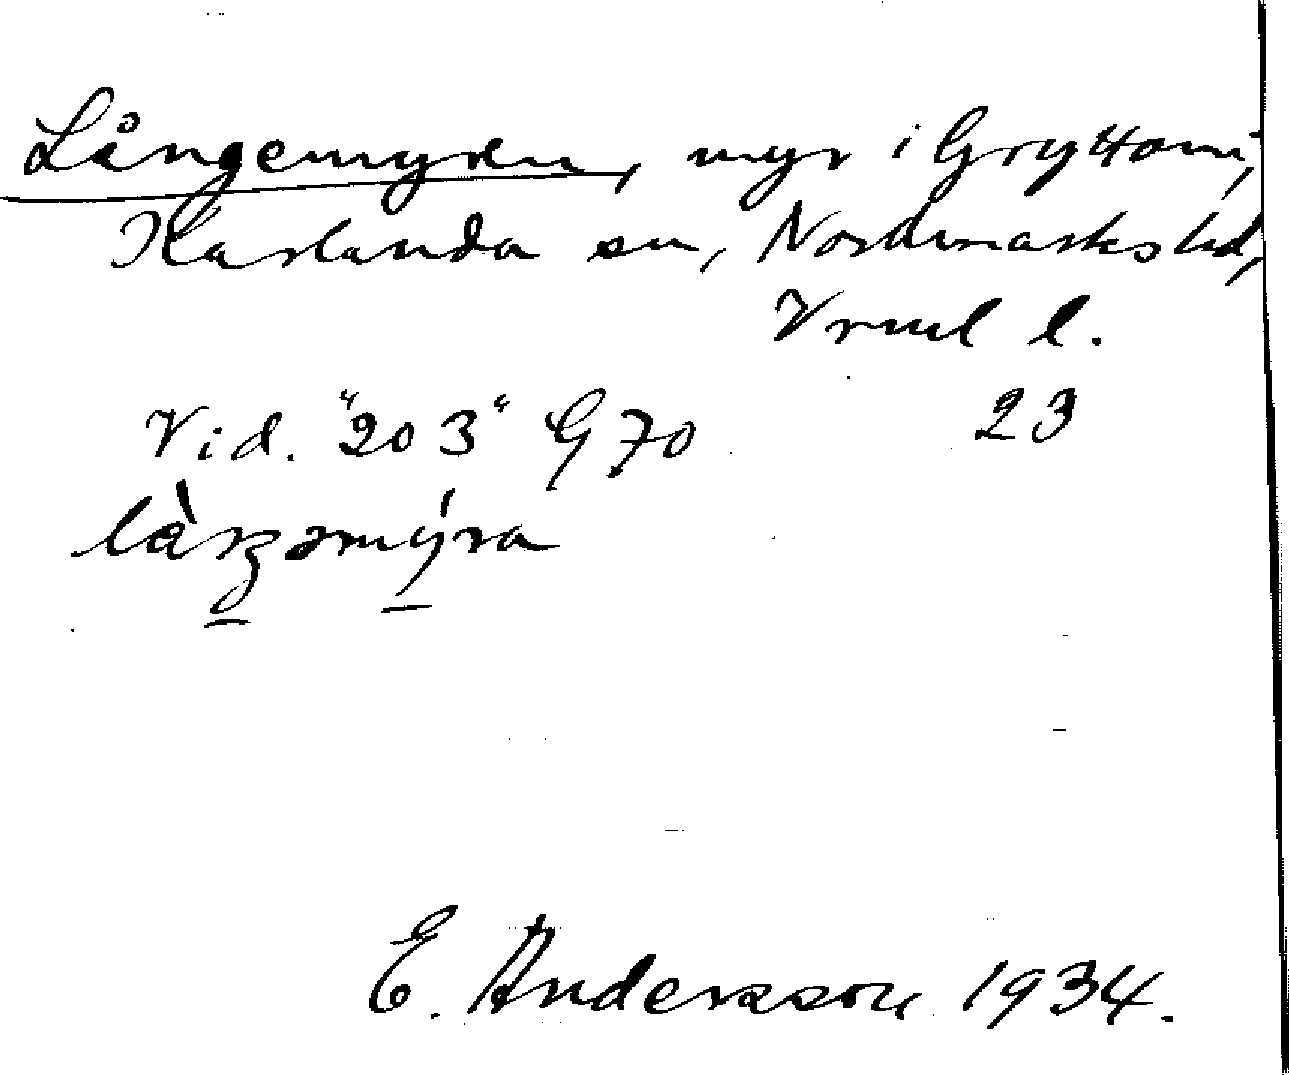 Långemyren, myr i Gryttom,
Karlanda sn, Nordmarks hd,
Vrml l.
Vid. "203" G 70 23
làŋəmýra
E. Andersson 1934.